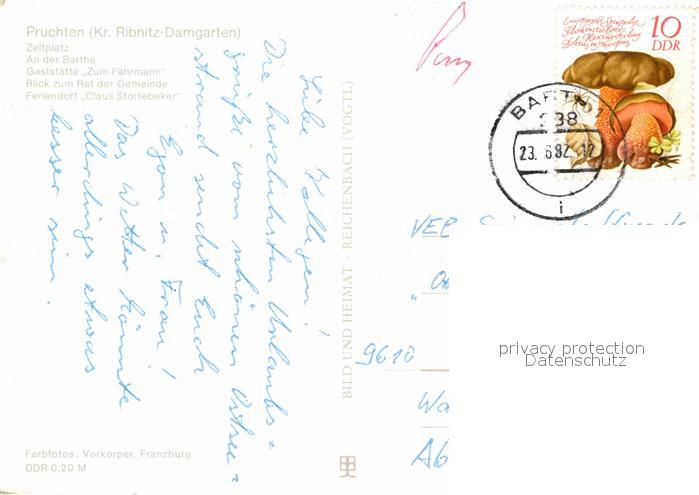 Pruchten (Kr. Ribnitz-Damgarten)
Zeltplatz
An der Barthe
Gaststätte „Zum Fährmann"
Blick zum Rat der Gemeinde
Feriendorf „Claus Störtebeker"
Liebe Kollegen!
Die herzlichsten Urlaubs=
grüße vom schönen Ostsee=
strand sendet Euch
Egon u. Frau!
Das Wetter könnte
allerdings etwas
besser sein.
Farbfotos: Vorkörper, Franzburg
DDR 0.20 M
BILD UND HEIMAT · REICHENBACH (VOGTL)
10
DDR
BARTH
23. 6.82.-12
i
VEB
9610
privacy protection
Datenschutz
Wa
Ab